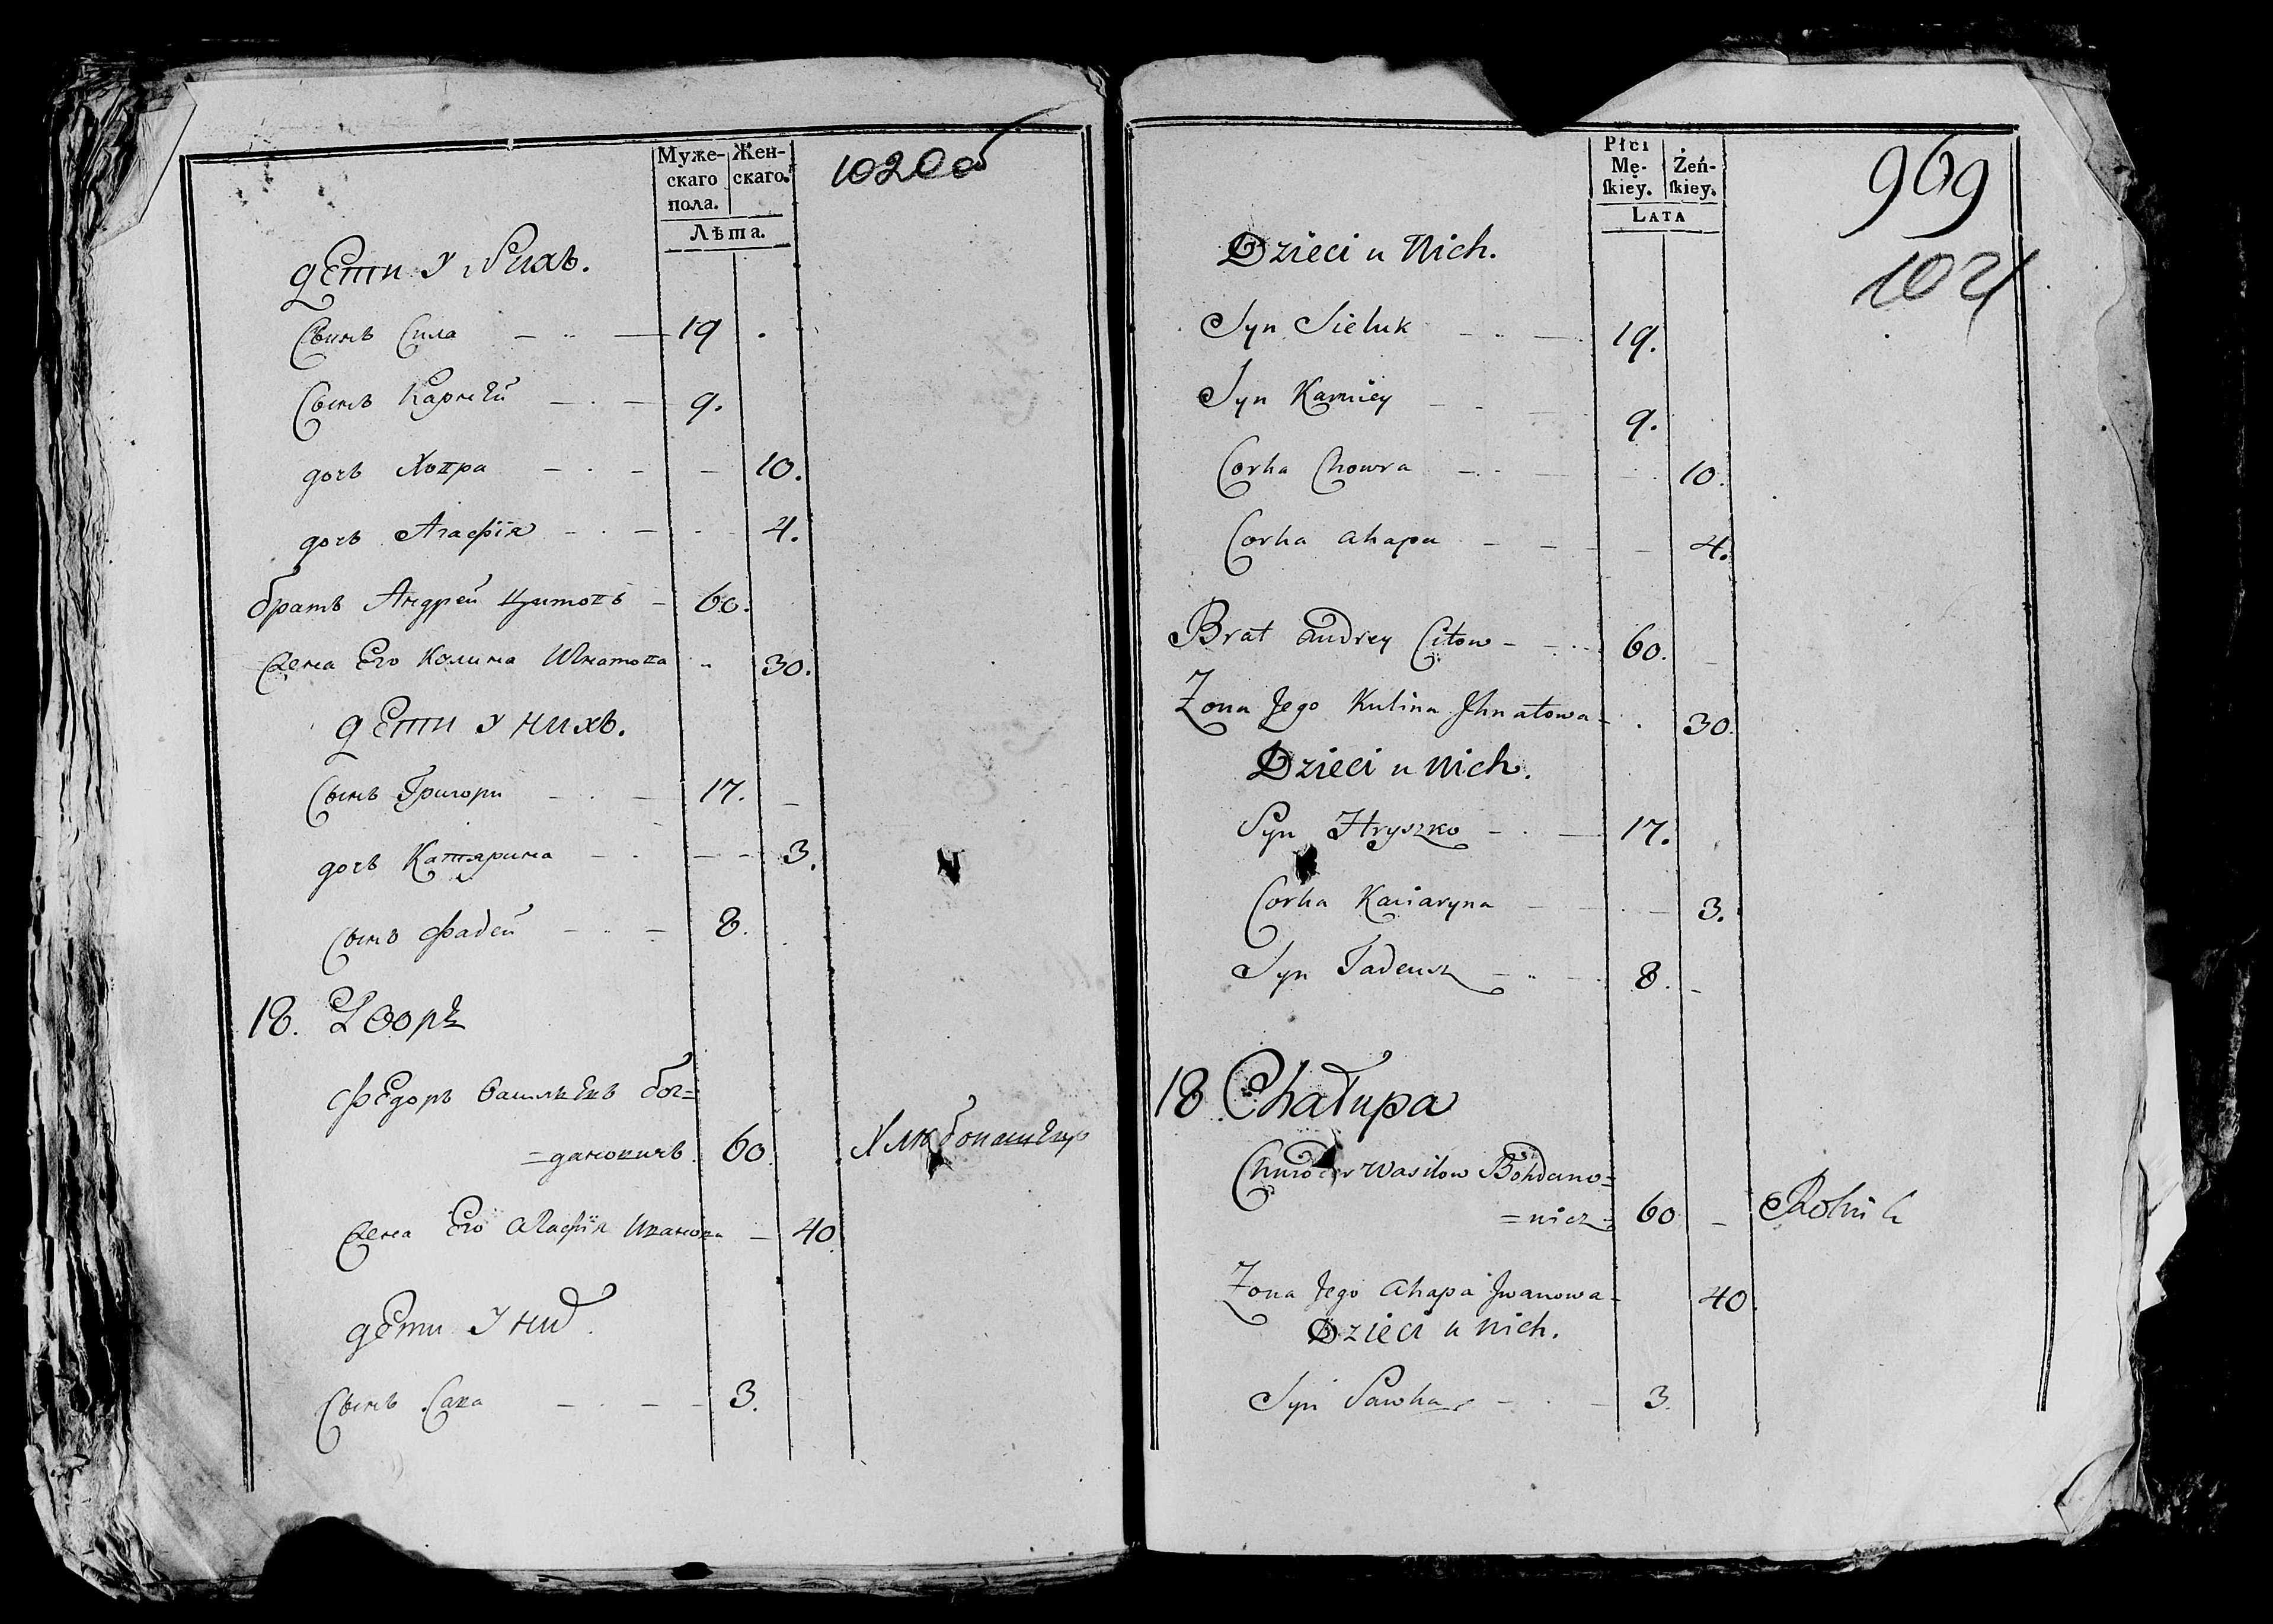 Муже-
скаго
пола.
Жен-
скаго.
Лѣта.
1020об
дети У Нихъ.
Сынъ Сила 19
Сынъ Карнѣй 9.
дочъ Ховра 10.
дочъ Агафія 4.
братъ Андрей Цитовъ 60.
жена Его Колина Игнатова 30.
дети У нихъ.
Сынъ Григори 17.
дочъ Катярина 3.
Сынъ Фадей 8.
18. Дворъ
Федоръ Василѣвъ Бог=
=дановичъ 60 Хлѣбопашецъ
жена Его Агафія Иванова 40
дети У них
Сынъ Сава 3.
Płci
Mę-
ſkiey.
Żeń-
ſkiey.
Lata
969
1021
Dzieci u Nich.
Syn Sieluk 19.
Syn Karniey 9.
Corka Chowra 10.
Corka Ahapa 4.
Brat Andrey Citow 60.
Zona Jego Kulina Jhnatowa 30.
Dzieci u Nich.
Syn Hryszko 17.
Corka Kaciaryna 3.
Syn Tadeusz 8.
18 Chałupa
Wasilow Bohdano=
=wicz 60 Rolnik
Zona Jego Ahapa Jwanowa 40.
Dzieci u Nich.
Syn Sawka 3.